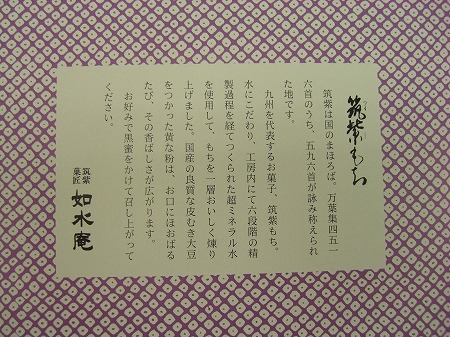 筑紫もち
筑紫は国のまほろば。万葉集四五一
六首のうち、五九六首が詠み称えられ
た地です。
九州を代表するお菓子、筑紫もち。
水にこだわり、工房内にて六段階の精
製過程を経てつくられた超ミネラル水
を使用して、もちを一層おいしく煉り
上げました。国産の良質な皮むき大豆
をつかった黄な粉は、お口にほおばる
たび、その香ばしさが広がります。
お好みで黒蜜をかけて召し上がって
ください。
筑紫
菓匠
如水庵